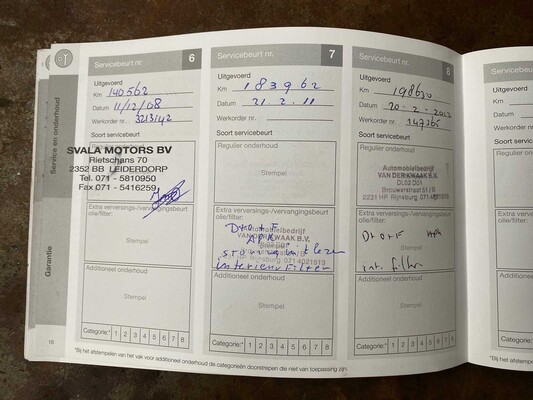 Service en onderhoud
Garantie
16
Servicebeurt nr. 6
Uitgevoerd
Km 140562
Datum 11/12/08
Werkorder nr. 3213142
Soort servicebeurt
SVALA MOTORS BV
Rietschans 70
2352 BB LEIDERDORP
Tel. 071 - 5810950
Fax 071 - 5416259
Extra verversings-/vervangingsbeurt
olie/filter:
Stempel
Additioneel onderhoud
Stempel
Categorie:* 1 2 3 4 5 6 7 8
Servicebeurt nr. 7
Uitgevoerd
Km 183962
Datum 21.2.11
Werkorder nr.
Soort servicebeurt
Regulier onderhoud:
Stempel
Extra verversings-/vervangingsbeurt
olie/filter:
Automobielbedrijf
VAN DER KWAAK B.V.
D+O+F
APK
interieurfilter
Rijnsburg 071 4021919
Additioneel onderhoud:
Stempel
Categorie:* 1 2 3 4 5 6 7 8
Servicebeurt nr. 8
Uitgevoerd
Km 198630
Datum 20-2-2012
Werkorder nr. 147365
Soort servicebeurt
Regulier onderhoud:
Automobielbedrijf
VAN DER KWAAK B.V.
Brouwerstraat 51
2231 HP Rijnsburg 071 4021919
Extra verversings-/vervangingsbeurt
olie/filter:
D+O+F
Stempel
int. filter
Additioneel onderhoud:
Stempel
Categorie:* 1 2 3 4 5 6 7 8
*Bij het afstempelen van het vak voor additioneel onderhoud de categorieën doorstrepen die niet van toepassing zijn.
Servicebeurt
Uitgevoerd
Km
Datum
Werkorder
Soort
Regulier
Extra
olie/filter
Additioneel
Categorie